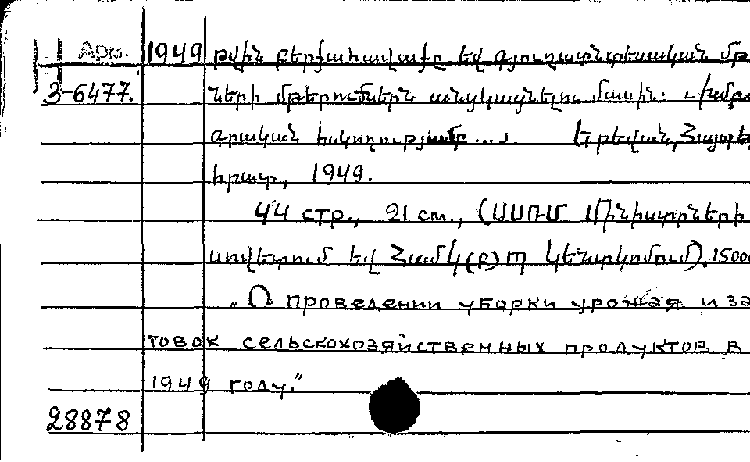 Арм. 1949 թվին բերքահավաքը եվ գյուղատնտեսական մթ
3-6477. ների մթերումներն անցկացնելու մասին: Խմբա
գրական հսկողությամբ ... Երևան, Հայպե
հրատ, 1949.
44 стр., 21 см., (ՍՍՌՄ Մինիստրների
սովետում եվ Համկ(բ)պ Կենտկոմում). 15000
"О проведении уборки урожая и за
товок сельскохозяйственных продуктов в
1949 году."
28878